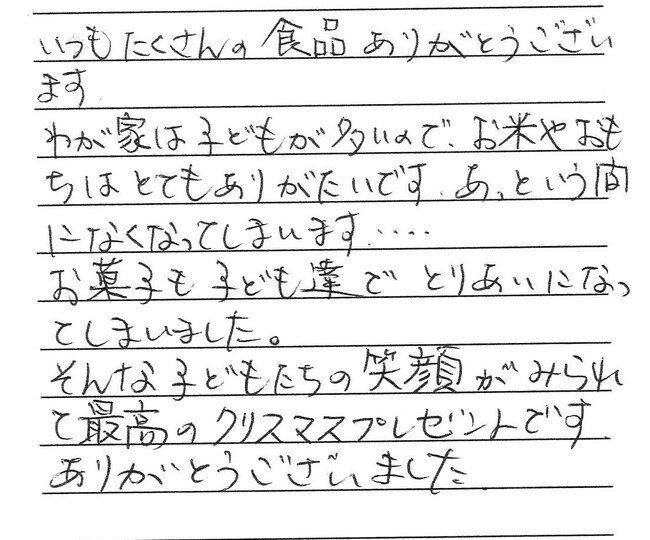 いつもたくさんの食品ありがとうござい
ます
わが家は子どもが多いので、お米やおも
ちはとてもありがたいです。あっという間
になくなってしまいます.....
お菓子も子ども達でとりあいになっ
てしまいました。
そんな子どもたちの笑顔がみられ
て最高のクリスマスプレゼントです
ありがとうございました